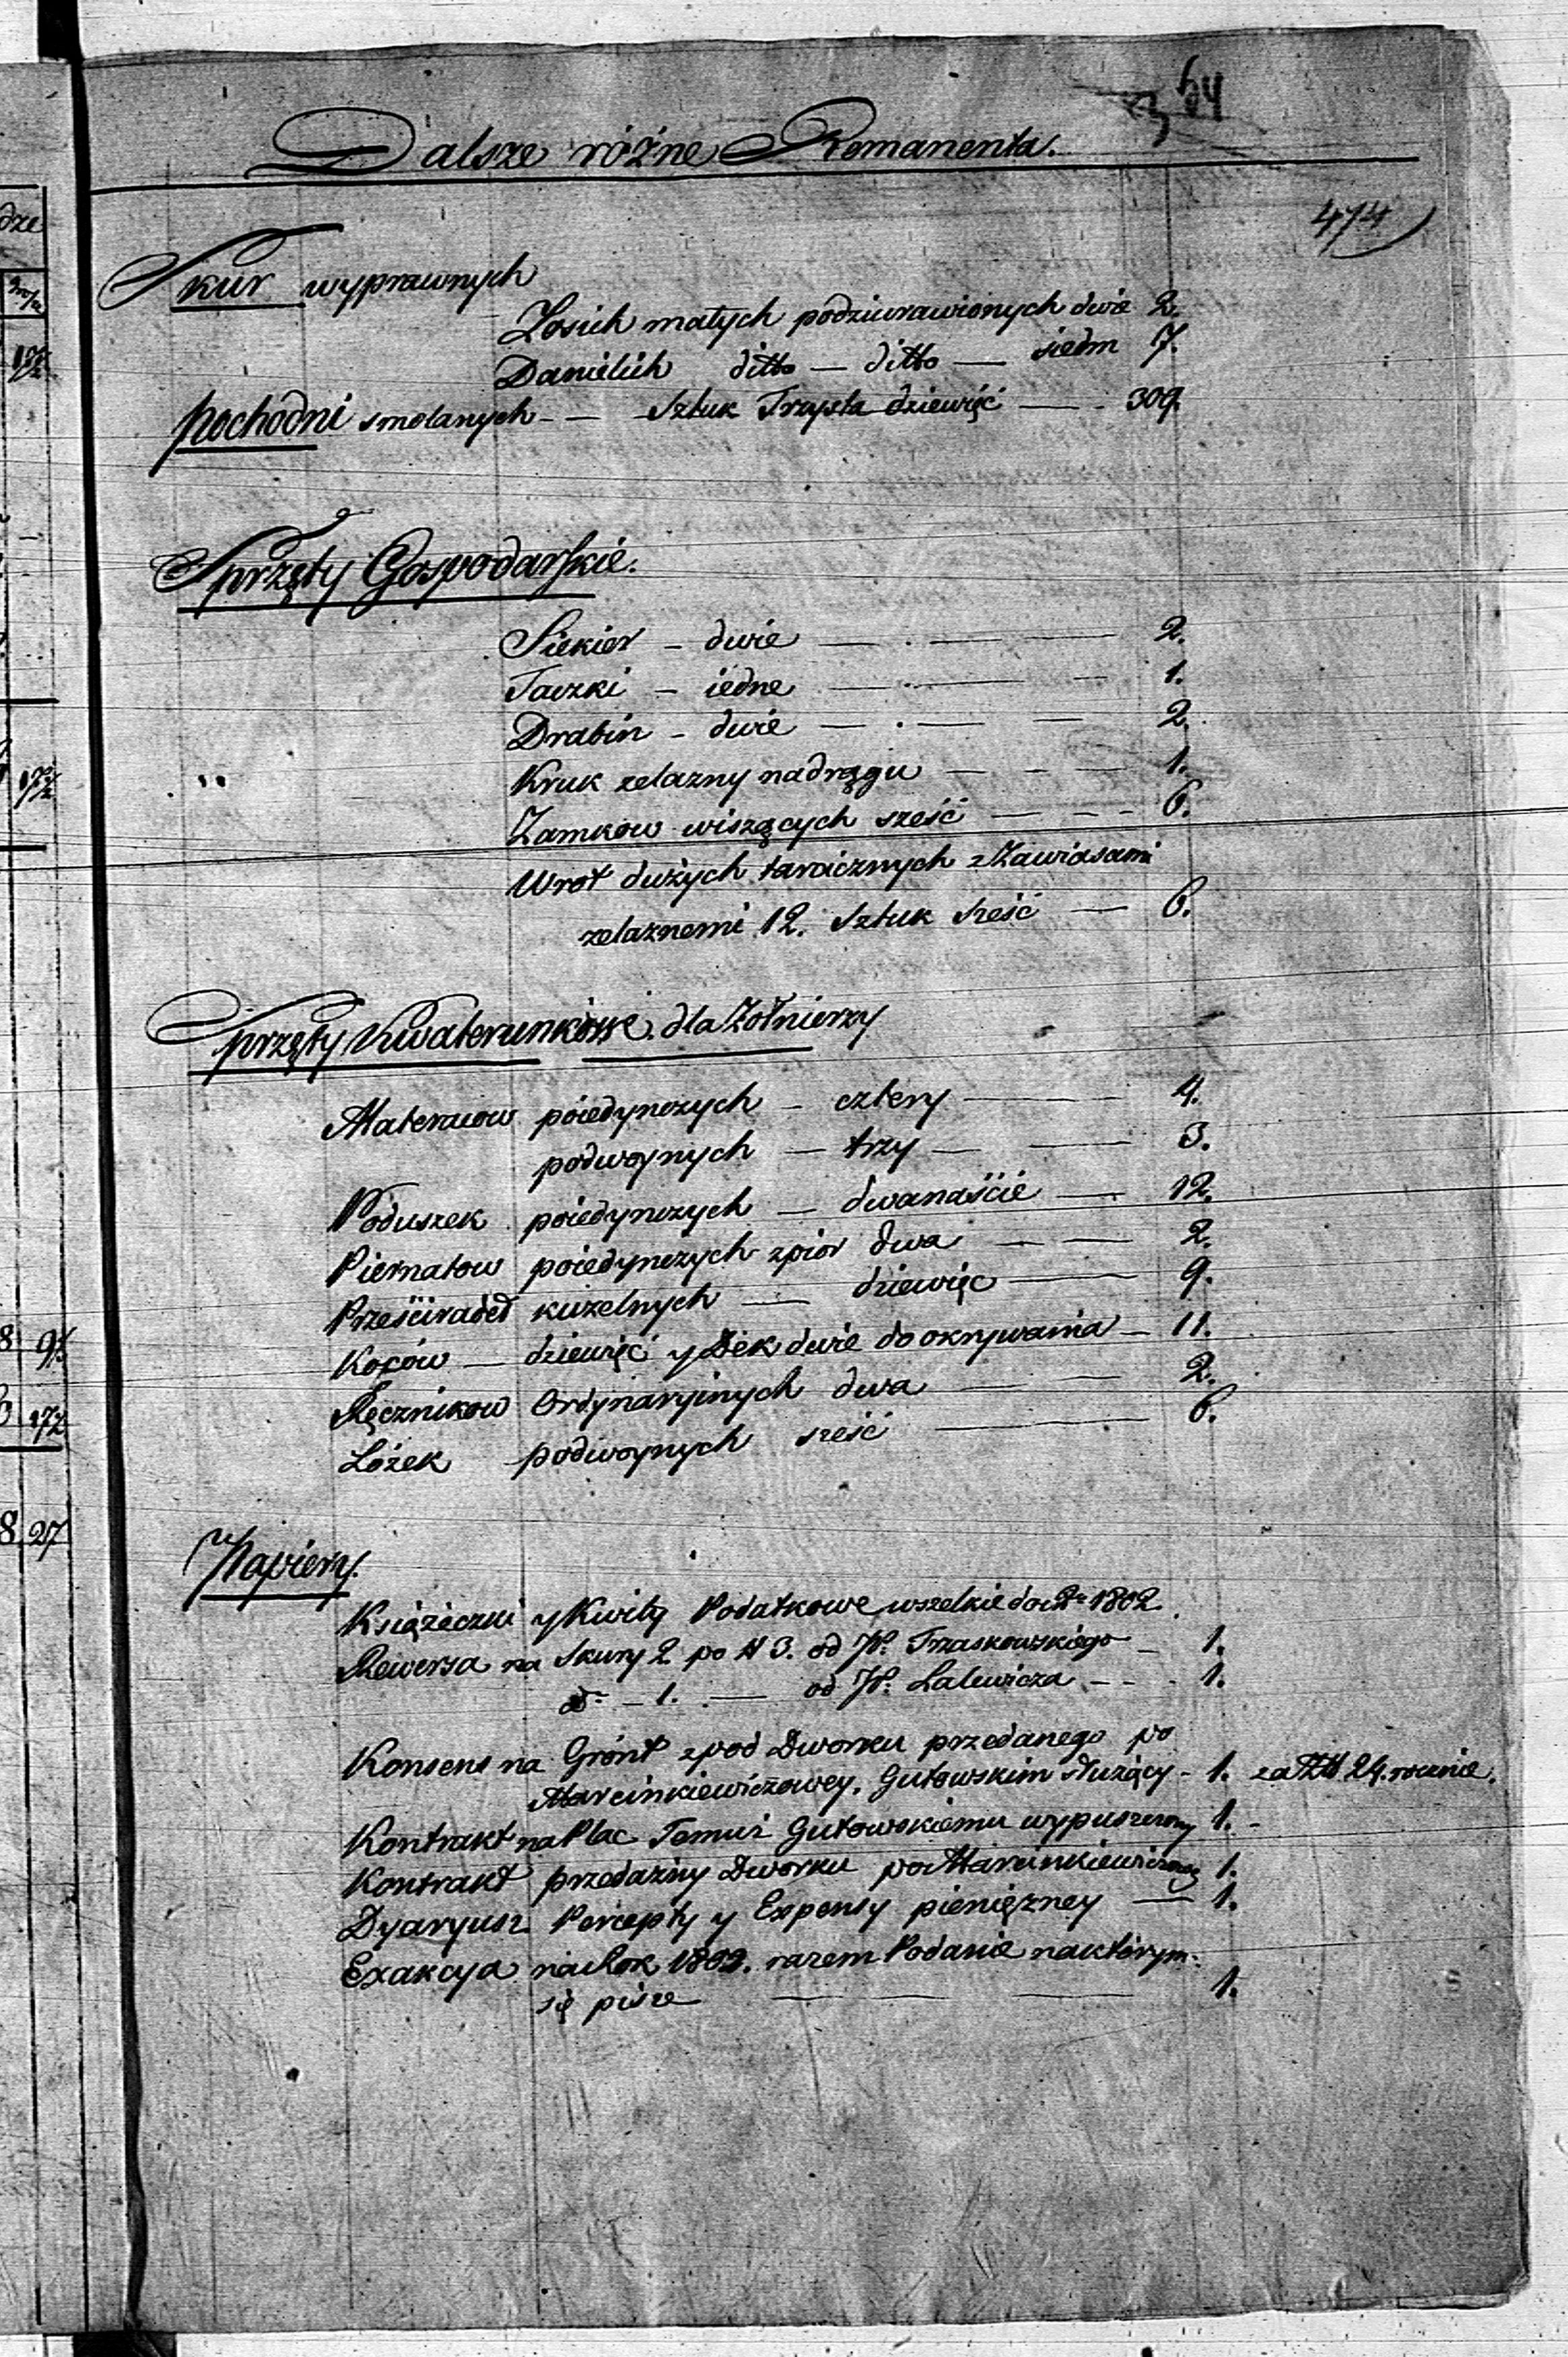 64
Dalsze różne Remanenta.
474
Skur wyprawnych
Łosich małych podziurawionych dwie 2.
Danielich ditto — ditto — siedm 7.
pochodni smolanych - — Sztuk Trzysta dziewięć — 309.
Sprzęty Gospodarskie.
Siekier - dwie — 2.
Taczki - iedne — 1.
Drabin - dwie — 2.
Kruk zelazny na drągu — 1.
Zamkow wiszących sześć — 6.
Wrot dużych tarcicznych z Zawiasami
zelaznemi 12. Sztuk sześć — 6.
Sprzęty Kwaterunkowe dla Żołnierzy
Materacow poiedynczych — cztery — 4.
podwoynych — trzy — 3.
Poduszek poiedynczych — dwanaście — 12.
Piernatow poiedynczych z pior dwa — 2.
Prześciradeł kuzelnych — dziewięc — 9.
Koców — dziewięć y Dek dwie do okrywania — 11.
Ręcznikow Ordynaryinych dwa — 2.
Łóżek podwoynych sześć — 6.
Papiery.
Książeczki y Kwity Podatkowe wszelkie do 1802
Rewersa na Skury 2 po # 3. od W. Trzaskowskiego — 1.
do — 1. — od W. Lalewicza — 1.
Konsens na Gront z pod Dworku przedanego po
Marcinkiewiczowey, Gutowskim służący - 1. za 24. rocznie.
Kontrakt na Plac Temuż Gutowskiemu wypuszczony 1. -
Kontrakt przedażny Dworku po Marcinkiewiczowey 1.
Dyaryusz Percepty y Expensy pieniężney — 1.
Exakcya na Rok 1802. razem Podanie na którym
się pisze — 1.
dze
8 27